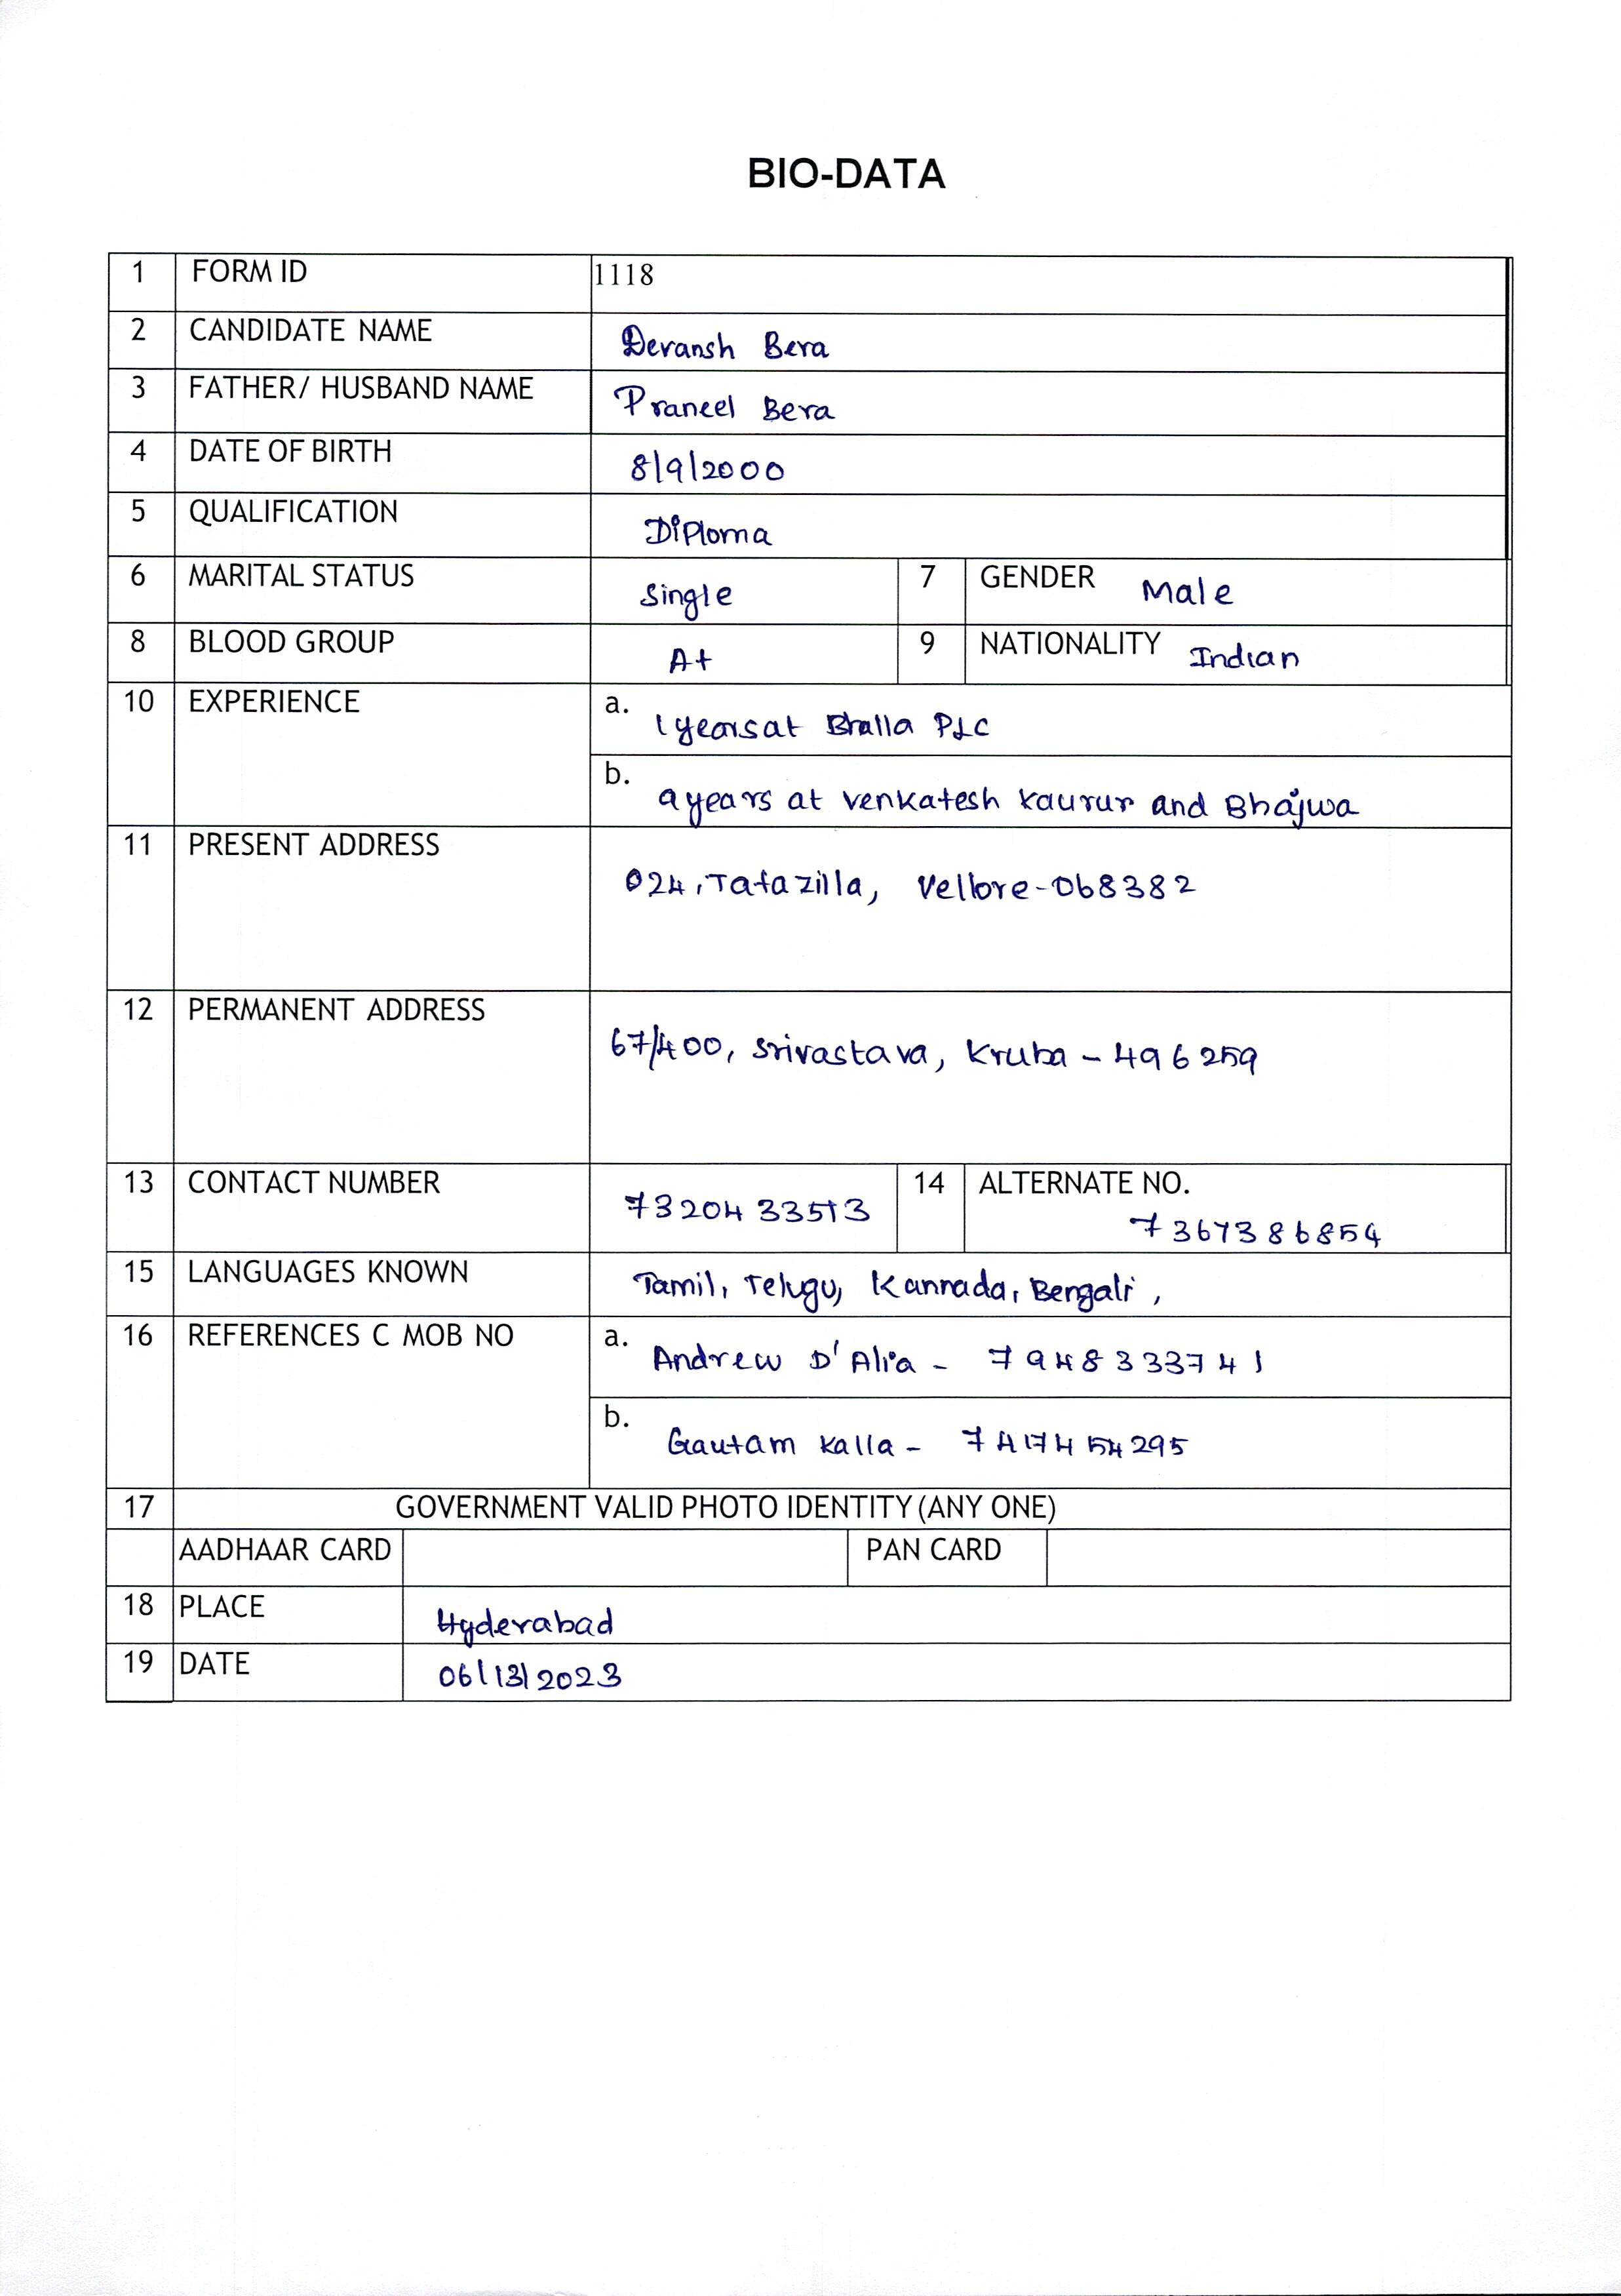 BIO-DATA
1 FORM ID 1118
2 CANDIDATE NAME Devansh Bera
3 FATHER/ HUSBAND NAME Praneel Bera
4 DATE OF BIRTH 8/9/2000
5 QUALIFICATION Diploma
6 MARITAL STATUS Single 7 GENDER Male
8 BLOOD GROUP A+ 9 NATIONALITY Indian
10 EXPERIENCE a. 1 years at Bhalla PLC
b. 9 years at Venkatesh Kaurur and Bhajwa
11 PRESENT ADDRESS 024, Tafazilla, Vellore-068382
12 PERMANENT ADDRESS 67/400, Srivastava, Kruba - 496259
13 CONTACT NUMBER 7320433513 14 ALTERNATE NO.
7367386854
15 LANGUAGES KNOWN Tamil, Telugu, Kannada, Bengali,
16 REFERENCES C MOB NO a. Andrew D'Alia - 7948333741
b. Gautam Kalla - 7417454295
17 GOVERNMENT VALID PHOTO IDENTITY (ANY ONE)
AADHAAR CARD PAN CARD
18 PLACE Hyderabad
19 DATE 06/13/2023